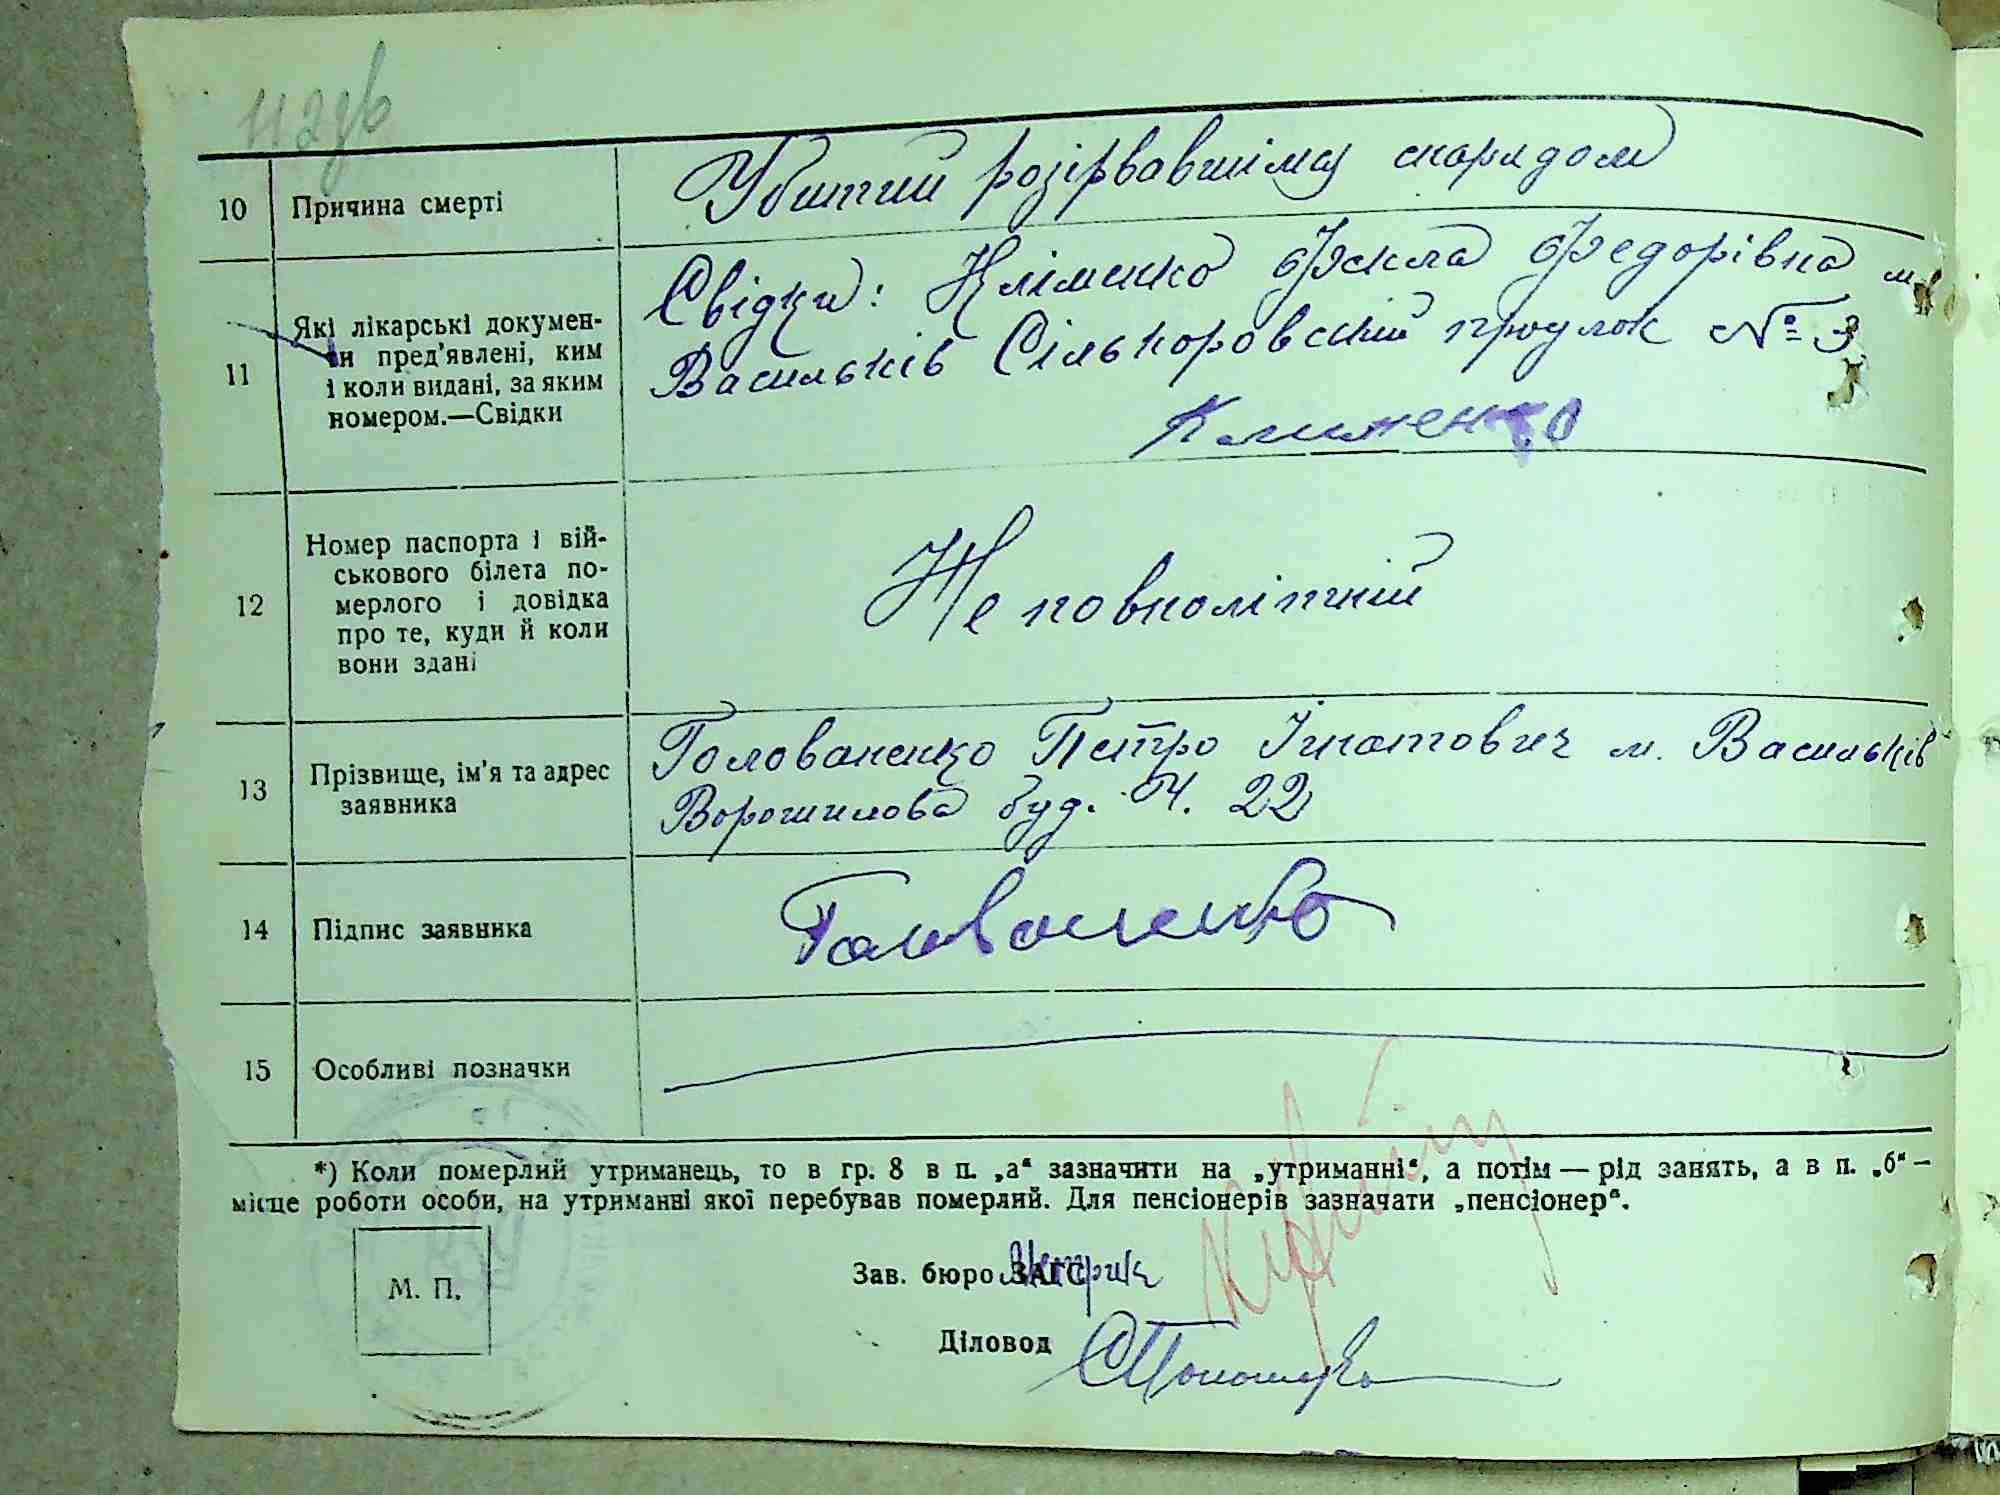 10 Причина смерті
Убитий розірвавшімся снарядом
11 Які лікарські докумен-
ти пред'явлені, ким
і коли видані, за яким
номером.—Свідки
Свідки: Кліменко Фекла Федорівна м.
Васильків Сількоровский проулок № 3
Клименко
12 Номер паспорта і вій-
ськового білета по-
мерлого і довідка
про те, куди й коли
вони здані
Не повнолітній
13 Прізвище, ім'я та адрес
заявника
Голованенко Петро Ігнатович м. Васильків
Ворошилова буд. Ч. 22
14 Підпис заявника
Голованенко
15 Особливі позначки
*) Коли померлий утриманець, то в гр. 8 в п. „а“ зазначити на „утриманні“, а потім — рід занять, а в п. „б“ —
місце роботи особи, на утриманні якої перебував померлий. Для пенсіонерів зазначати „пенсіонер“.
М. П.
Зав. бюро ЗАГС
Діловод